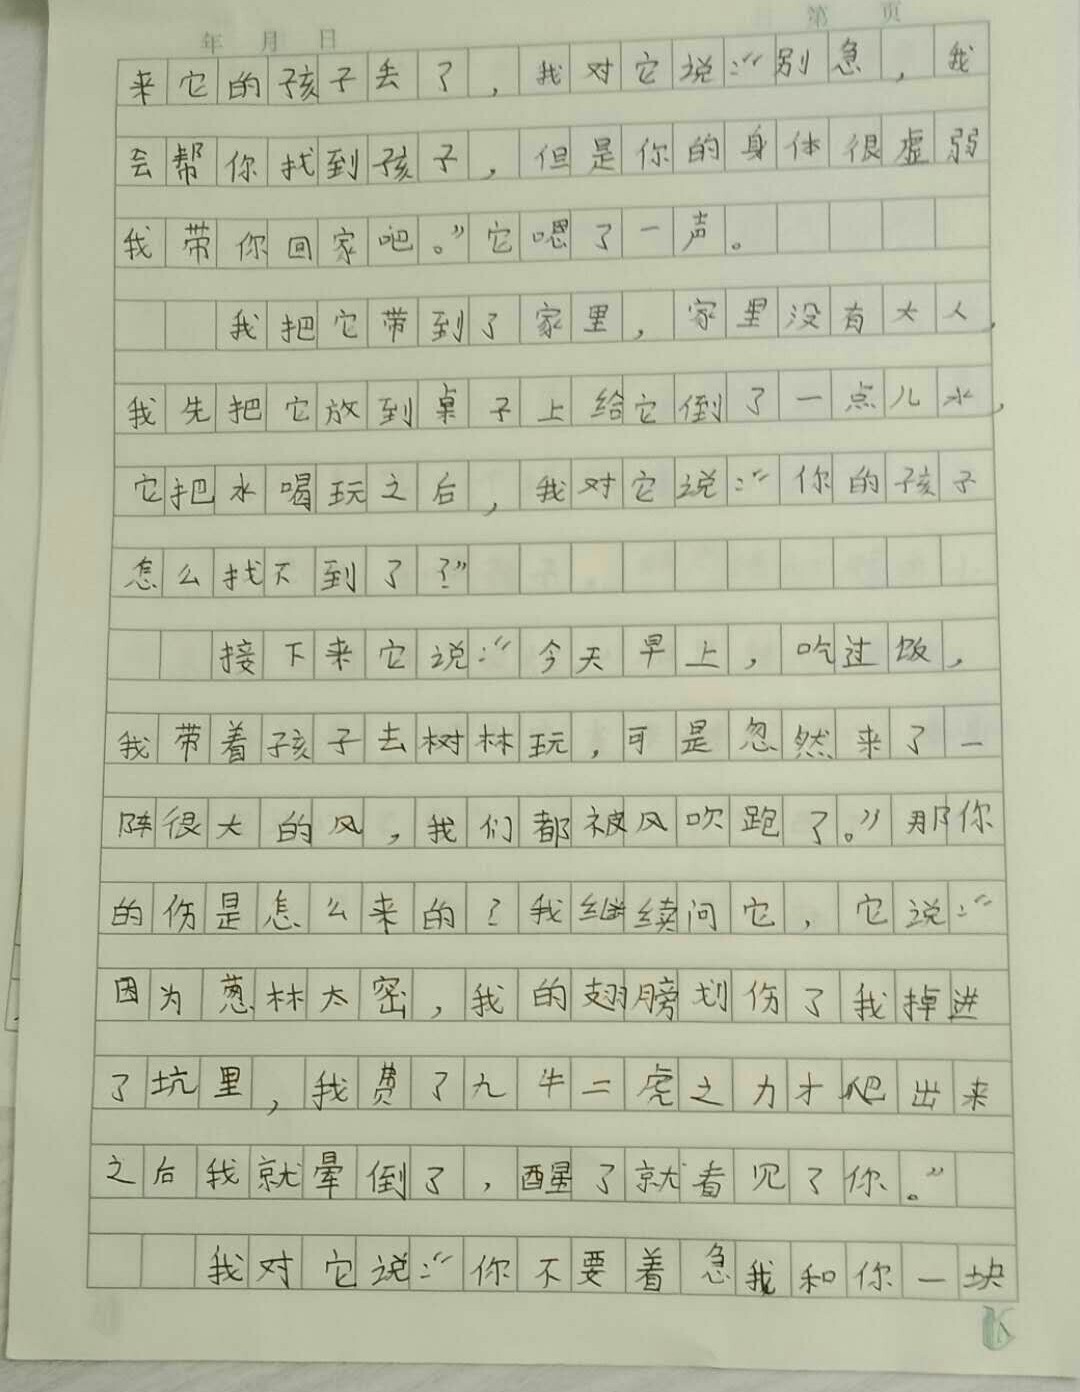 年 月 日 第 页
来它的孩子丢了，我对它说：“别急，我
会帮你找到孩子，但是你的身体很虚弱
我带你回家吧。”它嗯了一声。
我把它带到了家里，家里没有大人，
我先把它放到桌子上给它倒了一点儿水，
它把水喝玩之后，我对它说：“你的孩子
怎么找不到了？”
接下来它说：“今天早上，吃过饭，
我带着孩子去树林玩，可是忽然来了一
阵很大的风，我们都被风吹跑了。”那你
的伤是怎么来的？我继续问它，它说：“
因为葱林太密，我的翅膀划伤了我掉进
了坑里，我费了九牛二虎之力才爬出来
之后我就晕倒了，醒了就看见了你。”
我对它说：“你不要着急我和你一块